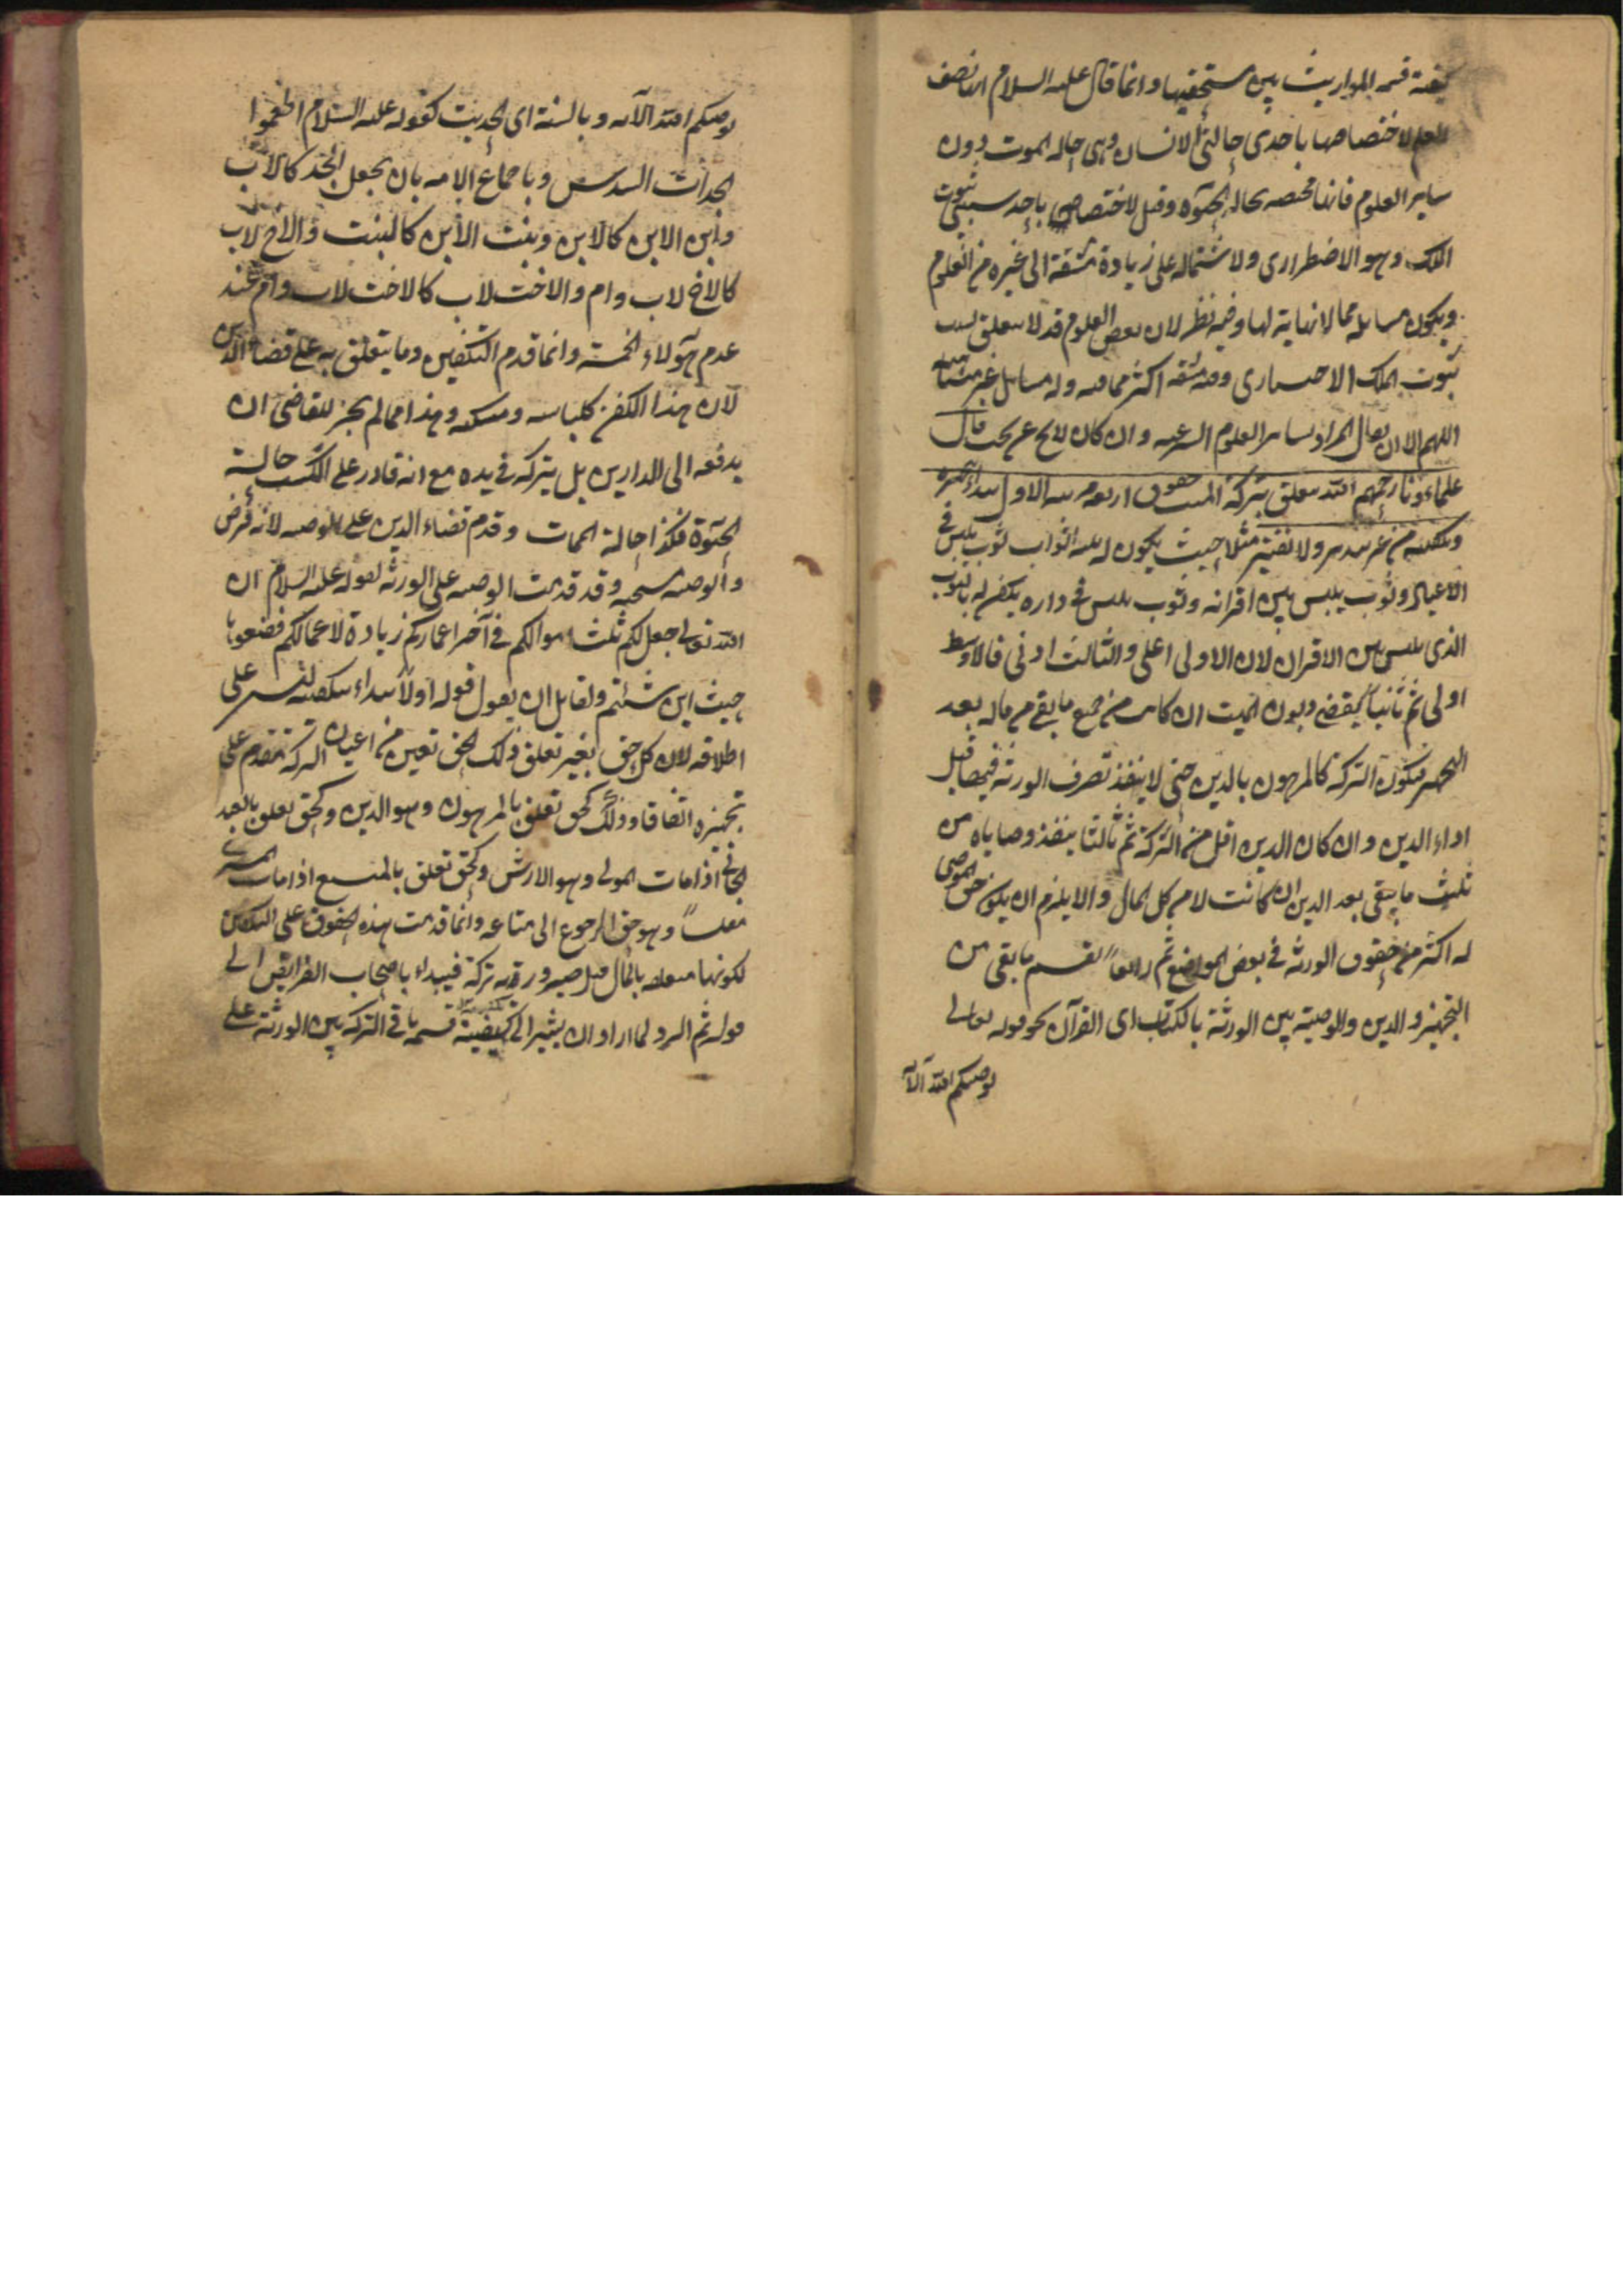 كيفية قسمة المواريث بين مستحقيها وانما قال عليه السلام انها نصف
العلم لاختصاصها باحدى حالتى الانسان وهى حالة الموت دون
ساير العلوم فانها مختصه بحالة الحيوه وقيل لاختصاصه باحد سببى ثبوت
الملك وهو الاضطرارى ولاشتماله على زيادة مشقة الى غيره من العلوم
ويكون مسايله مما لا نهاية لها وفيه نظر لان بعض العلوم قد لا يتعلق بسبب
ثبوت الملك الاختيارى وفيه مشقه اكثر مما فيه وله مسايل غير متناهية
اللهم الا ان يقال المراد بساير العلوم الشرعيه وان كان لا يخ عن بحث قال
علماؤنا رحمهم الله يتعلق بتركة الميت حقوق اربعه مرتبه الاول يبداء بتجهيزه
وتكفينه من غير تبذير ولا تقتير مثلا حيث يكون له ثلثه اثواب ثوب يلبس فى
الاعياد وثوب يلبس بين اقرانه وثوب يلبس فى داره يكفن له بالثوب
الذى يلبس بين الاقران لان الاولى اعلى والثالث ادنى فالاوسط
اولى ثم ثانيا يقضى ديون الميت ان كانت من جميع ما بقى من ماله بعد
التجهيز فيكون التركة كالمرهون بالدين حتى لا ينفذ تصرف الورثة فيها قبل
اداء الدين وان كان الدين اقل من التركة ثم ثالثا ينفذ وصاياه من
ثلث ما يبقى بعد الدين ان كانت لا من كل المال والا يلزم ان يكون حق الموصى
له اكثر من حقوق الورثه فى بعض المواضع ثم رابعا يقسم ما بقى من
التجهيز والدين والوصية بين الورثة بالكتاب اى القرآن نحو قوله تعالى
يوصيكم الله الآ
يوصيكم الله الآيه وبالسنة اى الحديث كقوله عليه السلام اطعموا
الجدات السدس وباجماع الامه بان يجعل الجد كالاب
وابن الابن كالابن وبنت الابن كالبنت والاخ لاب
كالاخ لاب وام والاخت لاب كالاخت لاب وام عند
عدم هؤلاء الخمسة وانما قدم التكفين وما يتعلق به على قضاء الدين
لان هذا الكفن كلباسه ومسكنه وهذا مما لم يجز للقاضى ان
يدفعه الى الداين بل يتركه فى يده مع انه قادر على الكسب حالة
الحيوة فكذا حالة الممات وقدم قضاء الدين على الوصيه لانه فرض
والوصيه مستحبه وقد قدمت الوصيه على الورثه لقوله عليه السلام ان
الله تعالى جعل لكم ثلث اموالكم فى آخر اعماركم زيادة لاعمالكم فضعوها
حيث اين شئتم ولقايل ان يقول قوله اولا يبداء بتكفينه ليس على
اطلاقه لان كل حق بغير تعلق ذلك الحق تعين من اعيان التركة مقدم على
تجهيزه اتفاقا وذلك كحق تعلق بالمرهون وهو الدين وكحق تعلق بالعبد
الجانى اذا مات المولى وهو الارش وكحق تعلق بالمبيع اذا مات المشترى
مفلسا وهو حق الرجوع الى متاعه وانما قدمت هذه الحقوق على التكفين
لكونها متعلقه بالمال قبل صيرورته تركة فيبداء باصحاب الفرايض الى
قوله ثم الرد لما اراد ان يشير الى كيفية قسمه باقى التركه بين الورثة على